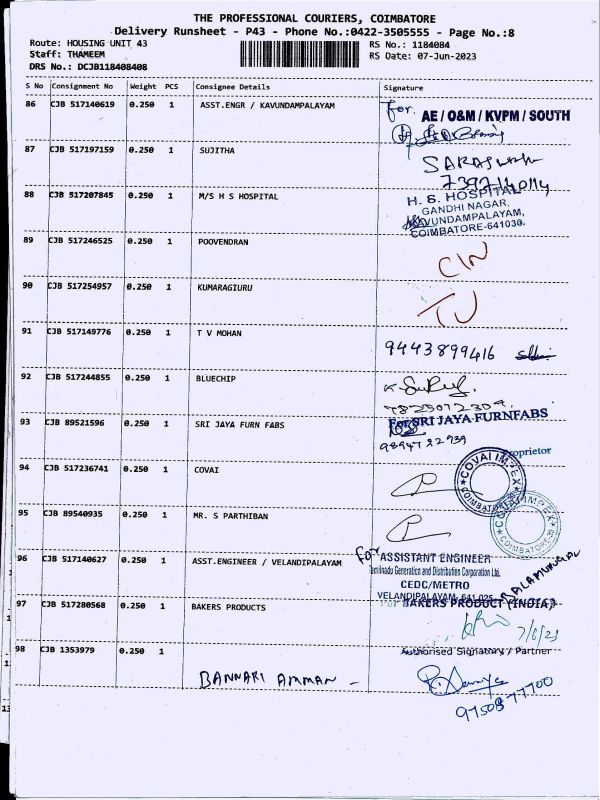 THE PROFESSIONAL COURIERS, COIMBATORE
Delivery Runsheet - P43 - Phone No.:0422-3505555 - Page No.:8
Route: HOUSING UNIT 43 RS No.: 1184084
Staff: THAMEEM RS Date: 07-Jun-2023
DRS No.: DCJB118408408
S No Consignment No Weight PCS Consignee Details Signature
86 CJB 517140619 0.250 1 ASST.ENGR / KAVUNDAMPALAYAM For. AE / O&M / KVPM / SOUTH
87 CJB 517197159 0.250 1 SUJITHA
88 CJB 517207845 0.250 1 M/S H S HOSPITAL H. S. HOSPITAL
GANDHI NAGAR,
KAVUNDAMPALAYAM,
COIMBATORE-641030.
89 CJB 517246525 0.250 1 POOVENDRAN
90 CJB 517254957 0.250 1 KUMARAGIURU
91 CJB 517149776 0.250 1 T V MOHAN 9443899416
92 CJB 517244855 0.250 1 BLUECHIP
93 CJB 89521596 0.250 1 SRI JAYA FURN FABS For SRI JAYA FURNFABS
Proprietor
94 CJB 517236741 0.250 1 COVAI COVAI IMPEX COIMBATORE
95 CJB 89540935 0.250 1 MR. S PARTHIBAN
96 CJB 517140627 0.250 1 ASST.ENGINEER / VELANDIPALAYAM For ASSISTANT ENGINEER
Tamilnadu Generation and Distribution Corporation Ltd.
CEDC/METRO
VELANDIPALAYAM, 641 025
97 CJB 517280568 0.250 1 BAKERS PRODUCTS BAKERS PRODUCT (INDIA)
7/6/23
Authorised Signatory / Partner
98 CJB 1353979 0.250 1
BANNARI AMMAN -
97508 77700